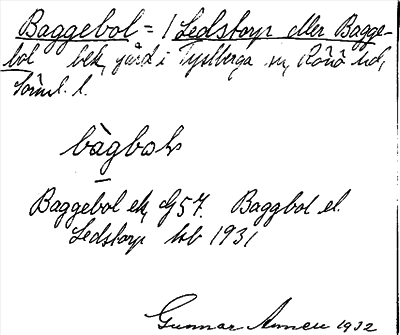 Baggebol = / Ledstorp eller Bagge-
bol bek, gård i Tystberga sn, Rönö hd,
Söml. l.
bàgbol
Baggebol ek, G57. Baggbol el.
Ledstorp 1931
Gunnar 1932